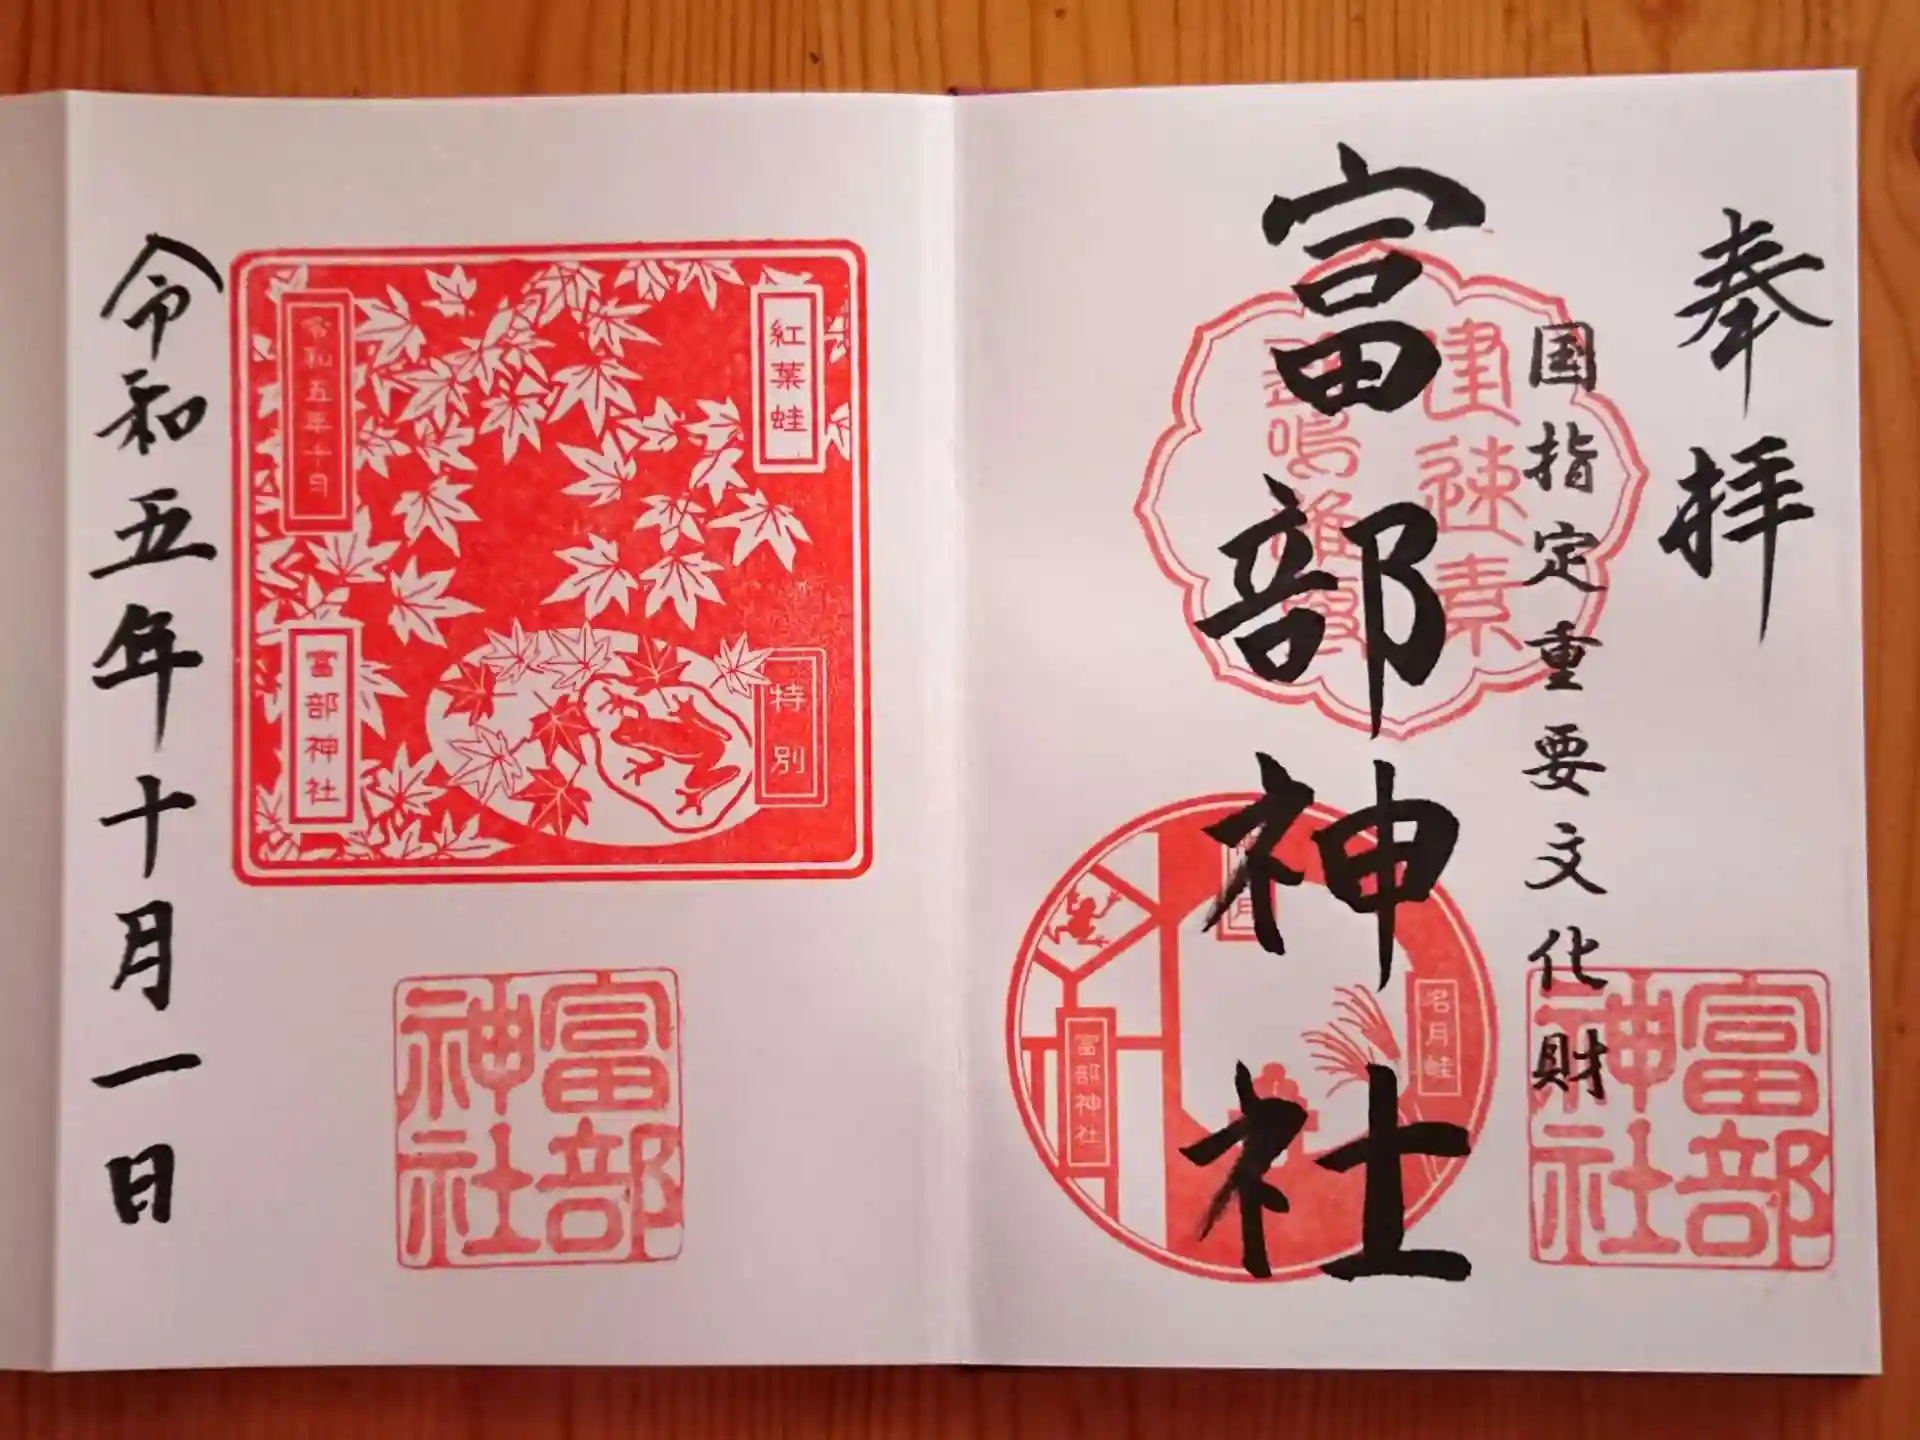 奉拝
国指定重要文化財
富部神社
建速素
富部神社
名月蛙
富部神社
紅葉蛙
特別
令和五年十月
富部神社
富部神社
令和五年十月一日